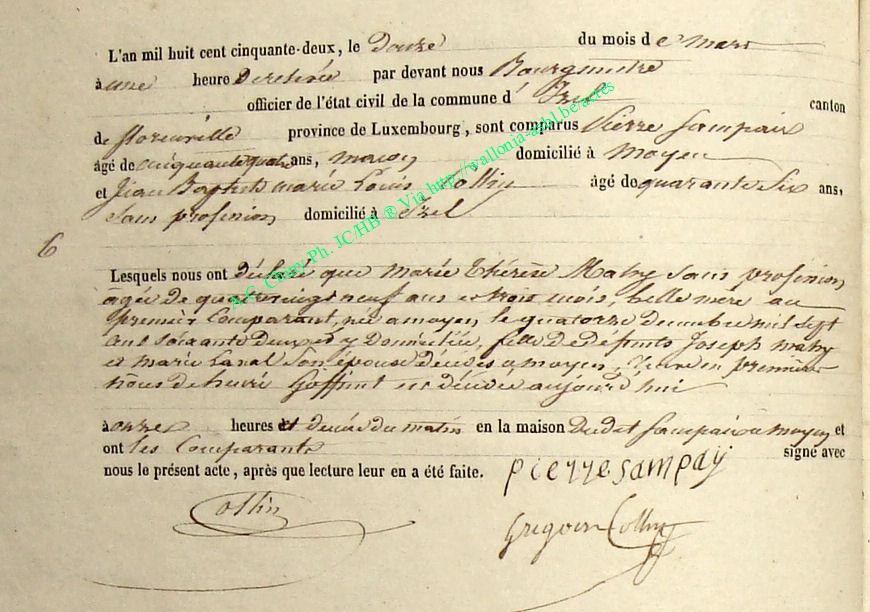 L'an mil huit cent cinquante-deux, le douze du mois de mars
à une heure de relevée par devant nous Bourgmestre
officier de l'état civil de la commune d'Izel canton
de florenville province de Luxembourg, sont comparus Pierre Sampaix
âgé de cinquante quatre ans, maçon domicilié à moyen
et Jean Baptiste marie Louis Collin âgé de quarante six ans,
sans profession domicilié à Izel
6
Lesquels nous ont déclaré que marie thérèse Mathy sans profession
agée de quatrevingt neuf ans et trois mois, belle mere au
premier Comparant, née a moyen le quatorze decembre mil sept
cent soixante deux et y Domiciliée, fille de defunts Joseph mathy
et marie Lanal son épouse décédés a moyen, veuve en premiere
nous de henri Goffinet est décédée aujourd'hui
à onze heures et demie du matin en la maison dudit Sampaix a moyen et
ont les Comparants signé avec
nous le présent acte, après que lecture leur en a été faite.
pierre sampaÿ
Collin
Gregoire Collin
A.G. Ph. JC/HB ® Via http://wallonia-asbl.be/actes